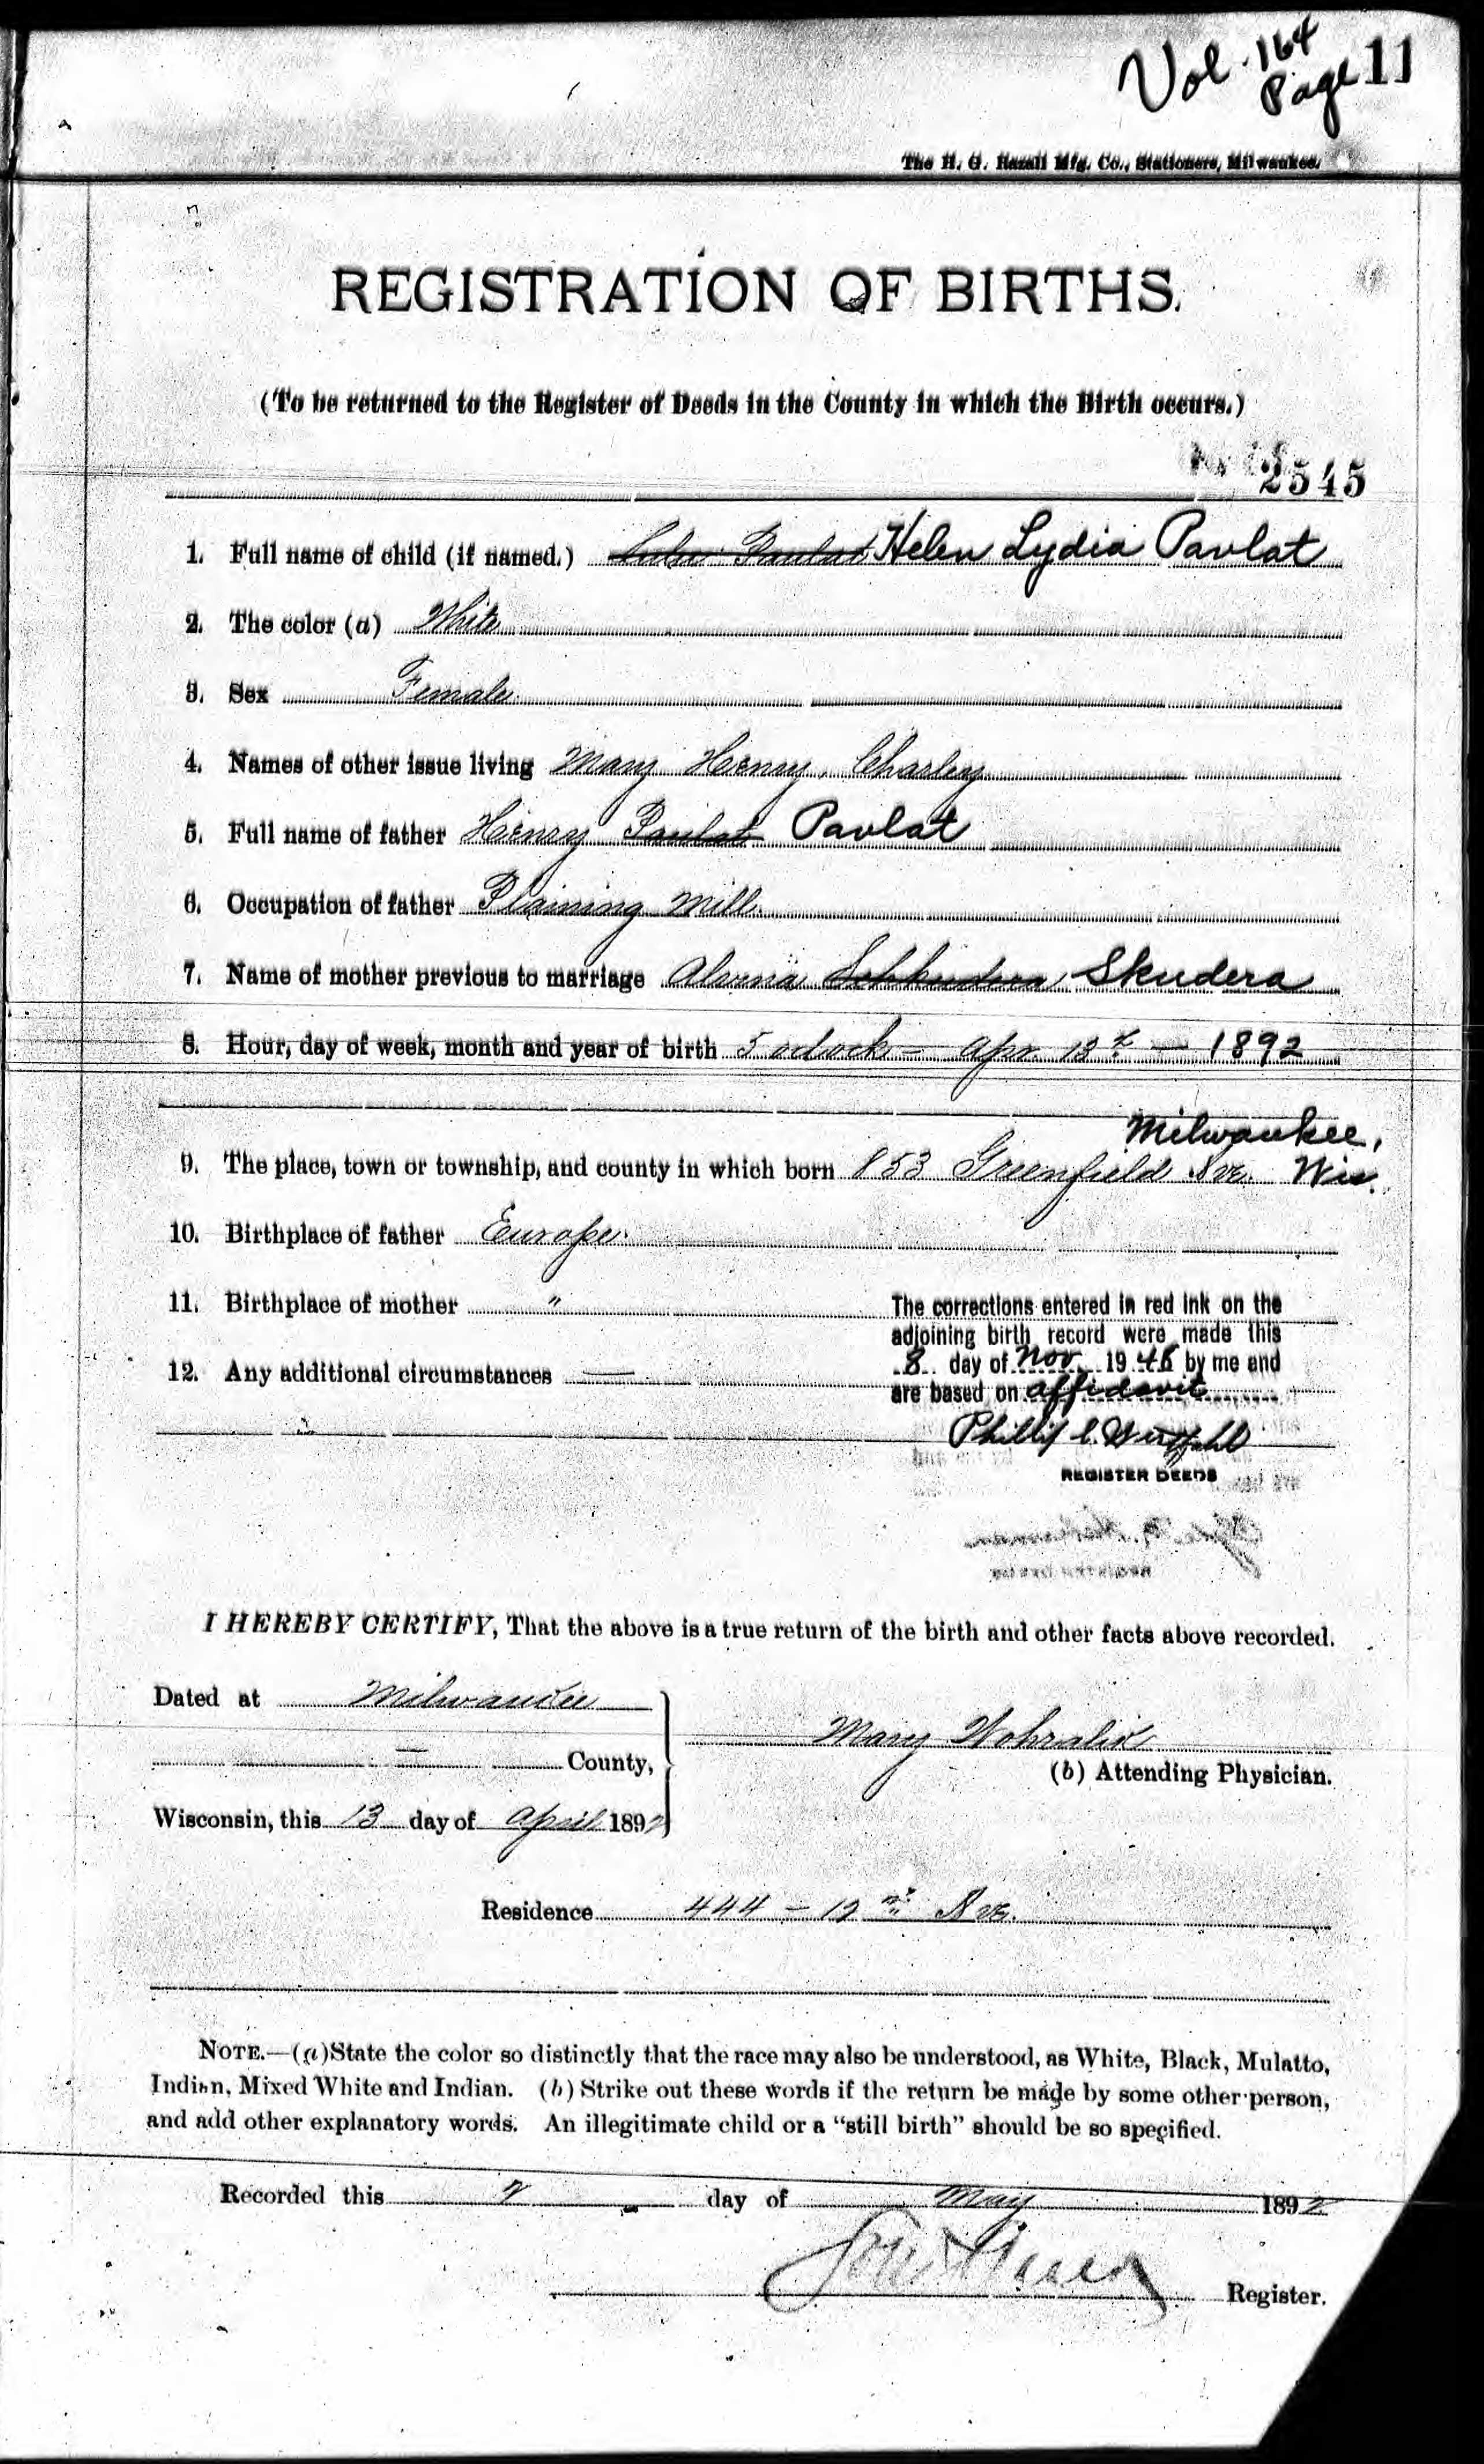 Vol. 164
Page 11
The H. G. Razall Mfg. Co., Stationers, Milwaukee.
REGISTRATION OF BIRTHS.
(To be returned to the Register of Deeds in the County in which the Birth occurs.)
2545
1. Full name of child (if named.) Helen Lydia Pavlat
2. The color (a) White
3. Sex Female
4. Names of other issue living Mary Henry, Charley
5. Full name of father Henry Paulat Pavlat
6. Occupation of father Plaining Mill.
7. Name of mother previous to marriage Skudera
8. Hour, day of week, month and year of birth 5 oclock – Apr. 13 – 1892
Milwaukee,
9. The place, town or township, and county in which born 853 Greenfield Ave. Wis.
10. Birthplace of father Europe.
11. Birthplace of mother "
The corrections entered in red ink on the
adjoining birth record were made this
8 day of Nov. 19 by me and
12. Any additional circumstances —
are based on affidavit
Phillip C.
REGISTER DEEDS
I HEREBY CERTIFY, That the above is a true return of the birth and other facts above recorded.
Dated at Milwaukee
— County,
Mary
(b) Attending Physician.
Wisconsin, this 13 day of April 1892
Residence 444 – 12 Ave.
NOTE.—(a) State the color so distinctly that the race may also be understood, as White, Black, Mulatto,
Indian, Mixed White and Indian. (b) Strike out these words if the return be made by some other person,
and add other explanatory words. An illegitimate child or a “still birth” should be so specified.
Recorded this 2 day of May 1892
Register.